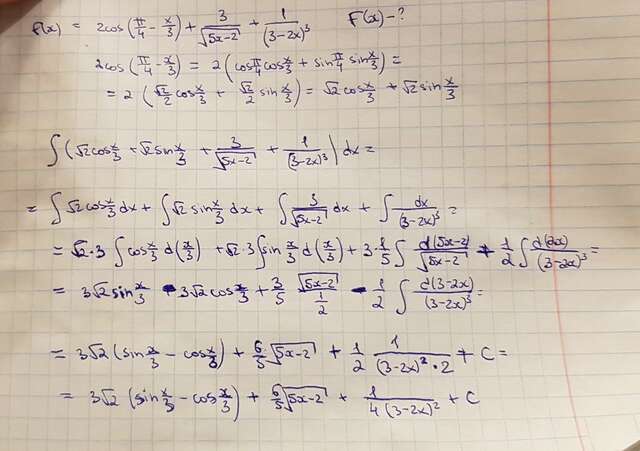 f(x) = 2cos(π/4 - x/3) + 3/√(5x-2) + 1/(3-2x)³ F(x) - ?
2cos(π/4 - x/3) = 2(cos π/4 cos x/3 + sin π/4 sin x/3) =
= 2(√2/2 cos x/3 + √2/2 sin x/3) = √2 cos x/3 + √2 sin x/3
∫(√2 cos x/3 + √2 sin x/3 + 3/√(5x-2) + 1/(3-2x)³)dx =
= ∫√2 cos x/3 dx + ∫√2 sin x/3 dx + ∫3/√(5x-2) dx + ∫dx/(3-2x)³ =
= √2·3 ∫cos x/3 d(x/3) + √2·3 ∫sin x/3 d(x/3) + 3·1/5 ∫d(5x-2)/√(5x-2) + 1/2 ∫d(2x)/(3-2x)³ =
= 3√2 sin x/3 - 3√2 cos x/3 + 3/5 √(5x-2)/(1/2) - 1/2 ∫d(3-2x)/(3-2x)³ =
= 3√2 (sin x/3 - cos x/3) + 6/5 √(5x-2) + 1/2 1/((3-2x)²·2) + C =
= 3√2 (sin x/3 - cos x/3) + 6/5 √(5x-2) + 1/(4(3-2x)²) + C